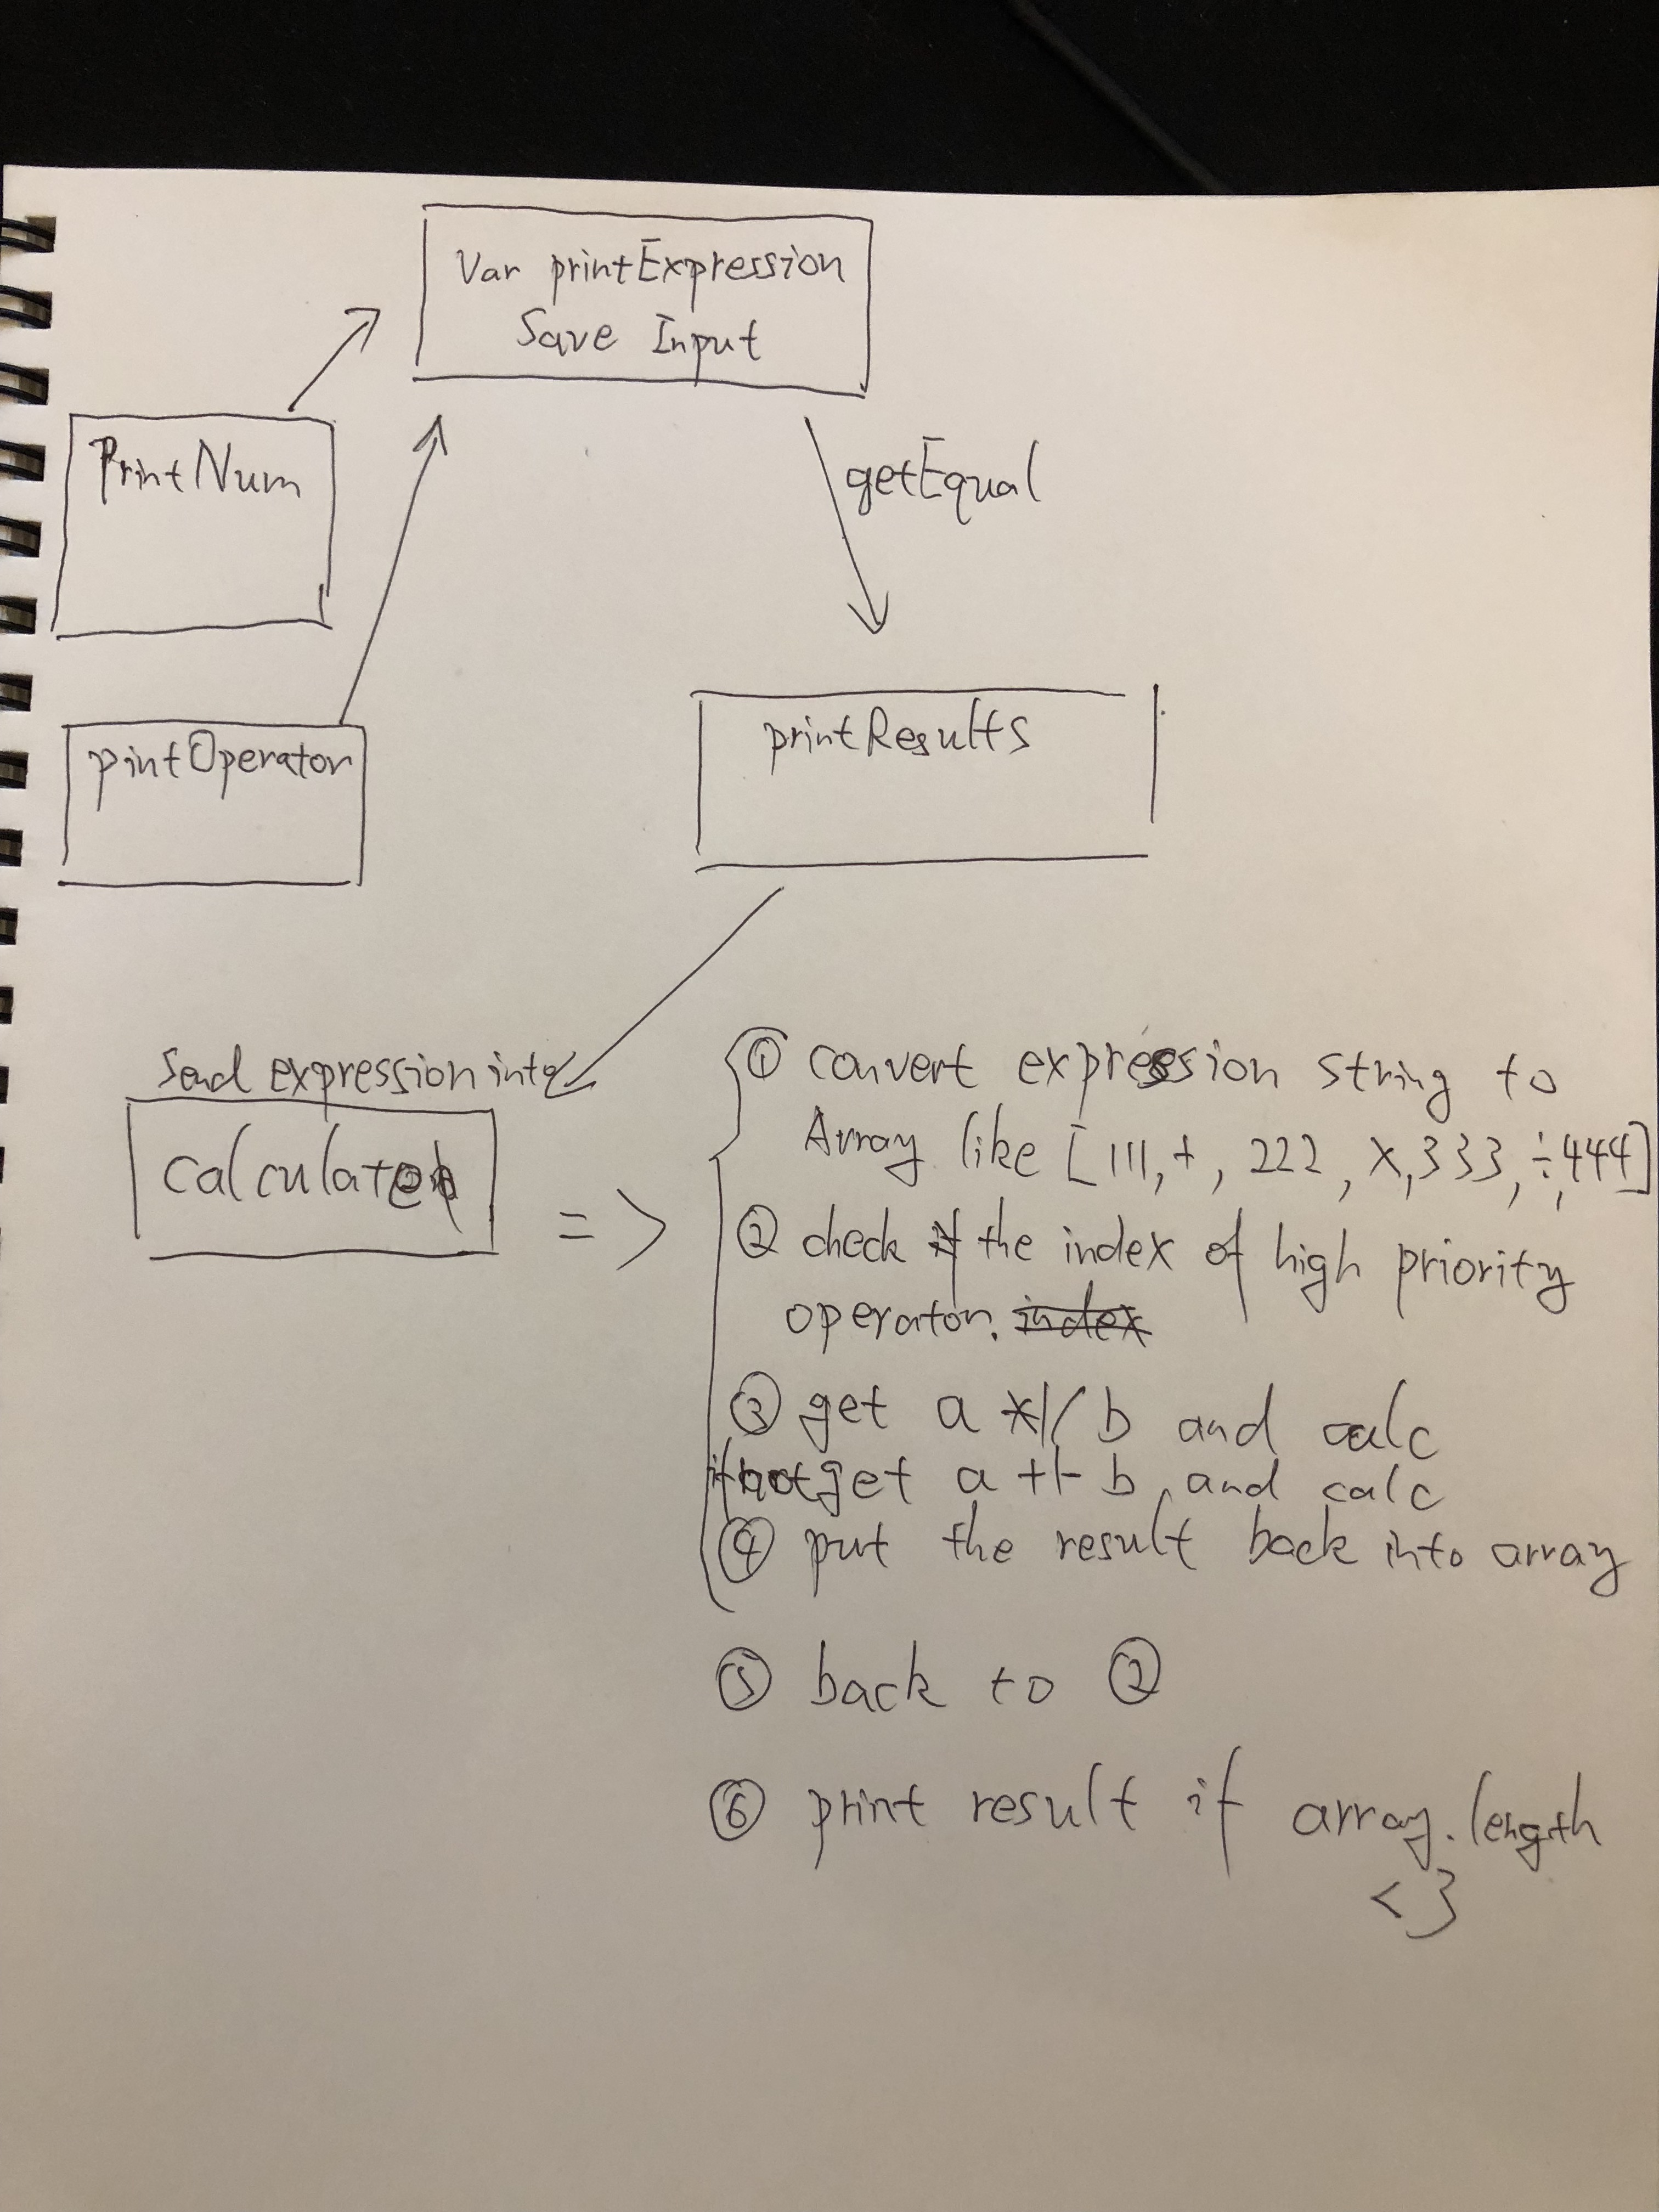 Var printExpression
Save Input
PrintNum
getEqual
printResults
pintOperator
Send expression into
calculate
=>
① convert expression string to
Array like [111,+, 222, x,333,÷,444]
② check if the index of high priority
operator. index
③ get a */ b and calc
if not get a +- b and calc
④ put the result back into array
⑤ back to ②
⑥ print result if array.length
<3